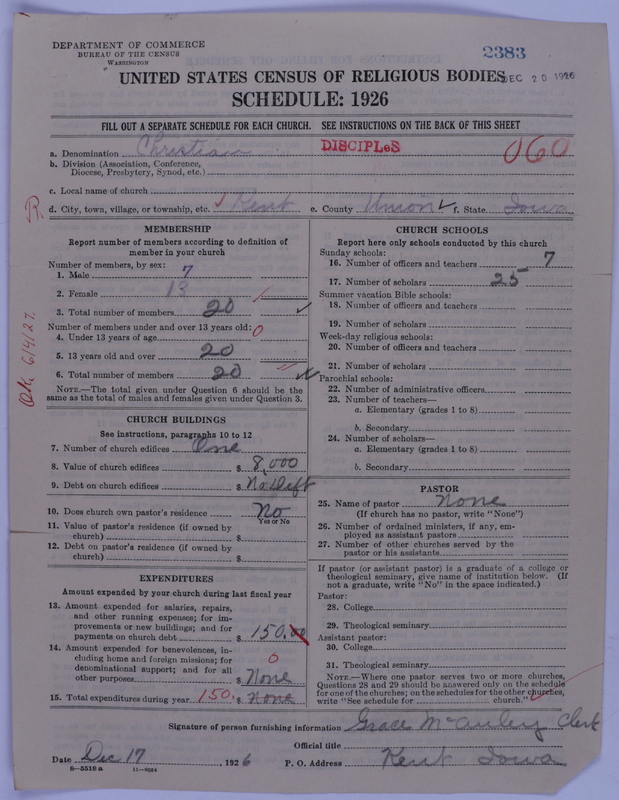 DEPARTMENT OF COMMERCE
BUREAU OF THE CENSUS
WASHINGTON
2383
DEC 20 1926
UNITED STATES CENSUS OF RELIGIOUS BODIES
SCHEDULE: 1926
FILL OUT A SEPARATE SCHEDULE FOR EACH CHURCH. SEE INSTRUCTIONS ON THE BACK OF THIS SHEET
a. Denomination Christian DISCIPLeS 060
b. Division (Association, Conference, Diocese, Presbytery, Synod, etc.)
c. Local name of church
d. City, town, village, or township, etc. Kent e. County Union f. State Iowa
R
OK 6/4/27.
MEMBERSHIP
Report number of members according to definition of
member in your church
Number of members, by sex:
1. Male 7
2. Female 13
3. Total number of members 20
Number of members under and over 13 years old:
4. Under 13 years of age 0
5. 13 years old and over 20
6. Total number of members 20
NOTE.—The total given under Question 6 should be the
same as the total of males and females given under Question 3.
CHURCH BUILDINGS
See instructions, paragraphs 10 to 12
7. Number of church edifices One
8. Value of church edifices $ 8,000
9. Debt on church edifices $ No Deft
10. Does church own pastor's residence No
Yes or No
11. Value of pastor's residence (if owned by
church) $
12. Debt on pastor's residence (if owned by
church) $
EXPENDITURES
Amount expended by your church during last fiscal year
13. Amount expended for salaries, repairs,
and other running expenses; for im-
provements or new buildings; and for
payments on church debt $ 150.00
14. Amount expended for benevolences, in-
cluding home and foreign missions; for 0
denominational support; and for all
other purposes $ None
15. Total expenditures during year 150. $ None
CHURCH SCHOOLS
Report here only schools conducted by this church
Sunday schools:
16. Number of officers and teachers 7
17. Number of scholars 25
Summer vacation Bible schools:
18. Number of officers and teachers
19. Number of scholars
Week-day religious schools:
20. Number of officers and teachers
21. Number of scholars
Parochial schools:
22. Number of administrative officers
23. Number of teachers—
a. Elementary (grades 1 to 8)
b. Secondary
24. Number of scholars—
a. Elementary (grades 1 to 8)
b. Secondary
PASTOR
25. Name of pastor None
(If church has no pastor, write "None")
26. Number of ordained ministers, if any, em-
ployed as assistant pastors
27. Number of other churches served by the
pastor or his assistants
If pastor (or assistant pastor) is a graduate of a college or
theological seminary, give name of institution below. (If
not a graduate, write "No" in the space indicated.)
Pastor:
28. College
29. Theological seminary
Assistant pastor:
30. College
31. Theological seminary
NOTE.—Where one pastor serves two or more churches,
Questions 28 and 29 should be answered only on the schedule
for one of the churches; on the schedules for the other churches,
write "See schedule for church."
Signature of person furnishing information Grace McAuley Clerk
Official title
Date Dec 17, 1926 P. O. Address Kent Iowa
6—5518 a 11—9684